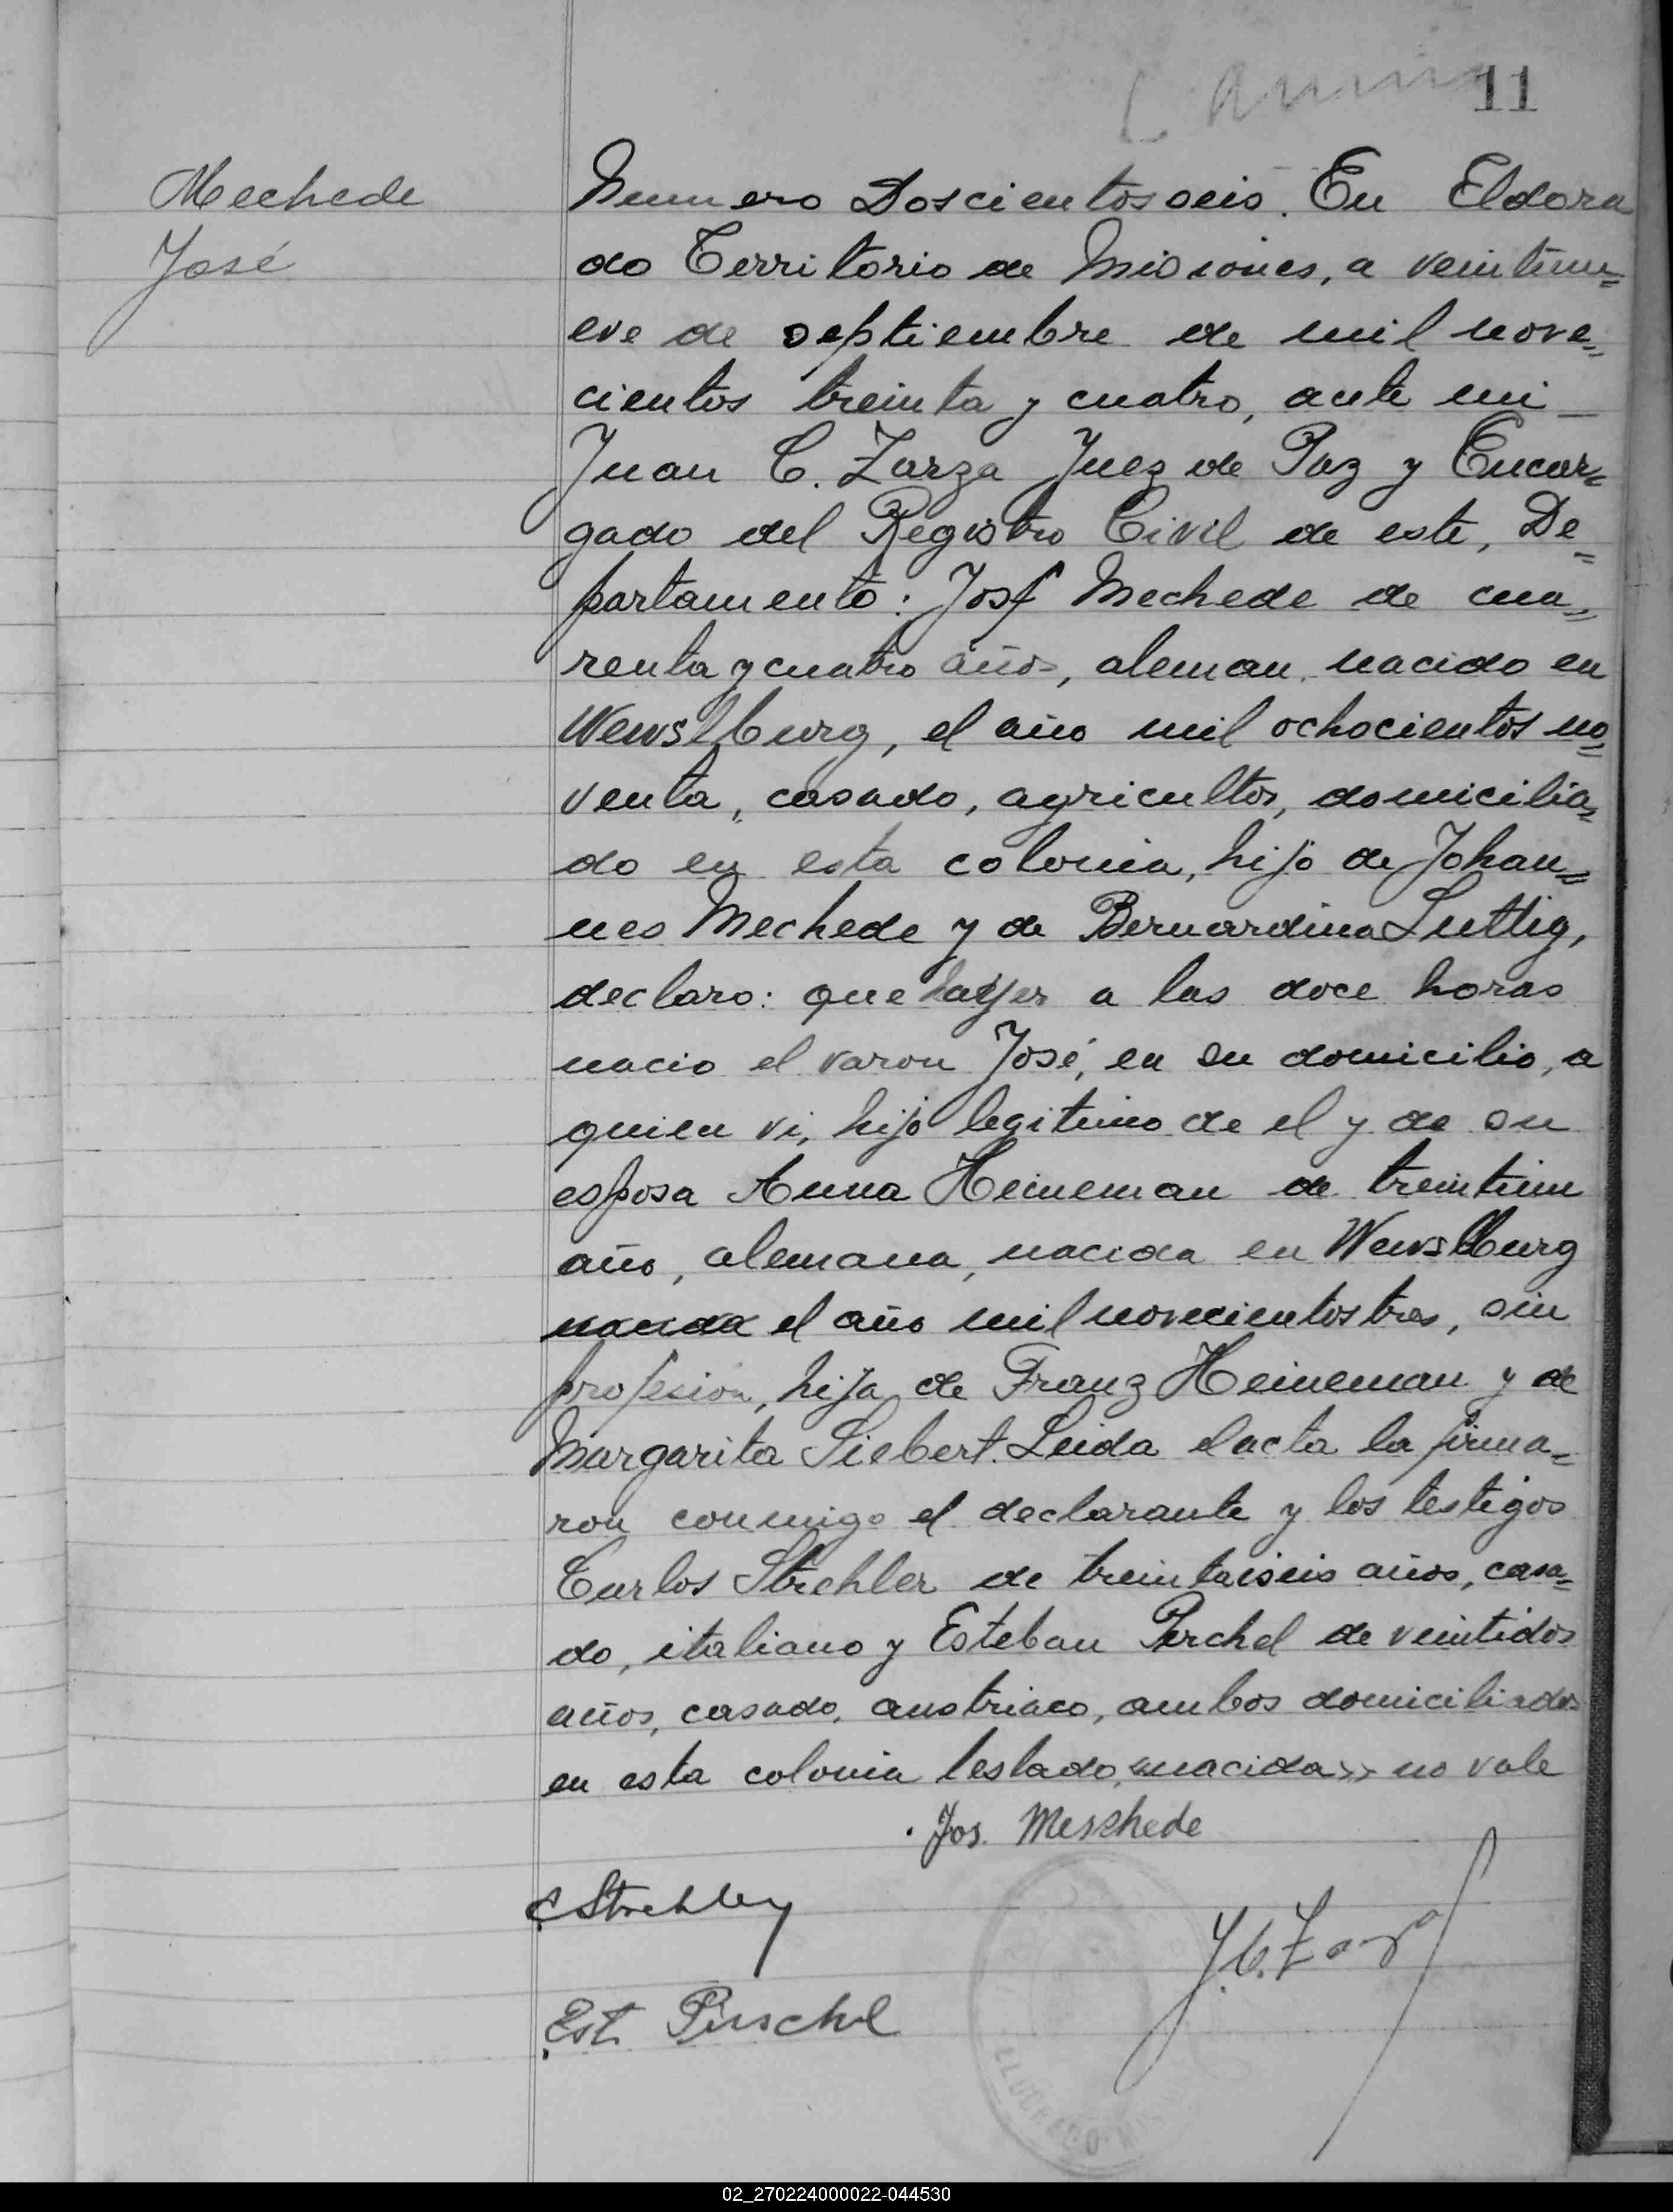 11
Mechede
José
Numero Doscientos seis. En Eldora
do Territorio de Misiones, a veintinu=
eve de septiembre de mil nove=
cientos treinta y cuatro, ante mi
Juan C. Zarza Juez de Paz y Encar=
gado del Registro Civil de este, De=
partamento: Josf Mechede de cua=
renta y cuatro años, aleman, nacido en
Wewslburg, el año mil ochocientos no=
venta, casado, agricultor, domicilia=
do en esta colonia, hijo de Johan=
nes Mechede y de Bernardina Luttig,
declaro: que hayer a las doce horas
nacio el varon José, en su domicilio, a
quien vi, hijo legitimo de el y de su
esposa Anna Heineman de treintiun
año, alemana, nacida en Wewslburg
nacida el año mil novecientos tres, sin
profesión, hija de Franz Heineman y de
Margarita Siebert. Leida el acta la firma=
ron conmigo el declarante y los testigos
Carlos Strehler de treintaiseis años, casa=
do, italiano y Esteban Perchel de veintidos
años, casado, austriaco, ambos domiciliados
en esta colonia testado «nacida» no vale
Jos. Meschede
C Strehler
J.C. Zarza
Est. Pirschl
02_270224000022-044530